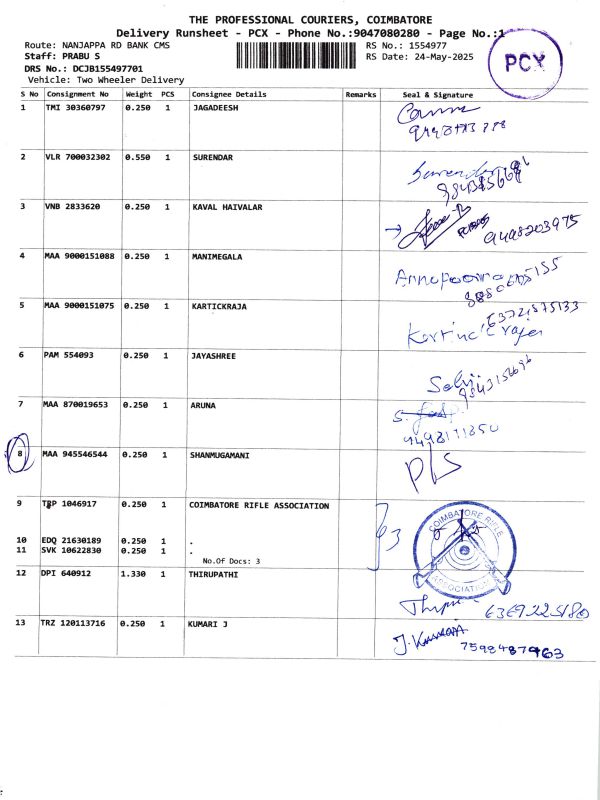 THE PROFESSIONAL COURIERS, COIMBATORE
Delivery Runsheet - PCX - Phone No.:9047080280 - Page No.:1
Route: NANJAPPA RD BANK CMS RS No.: 1554977
Staff: PRABU S RS Date: 24-May-2025
PCX
DRS No.: DCJB155497701
Vehicle: Two Wheeler Delivery
S No Consignment No Weight PCS Consignee Details Remarks Seal & Signature
1 TMI 30360797 0.250 1 JAGADEESH
2 VLR 700032302 0.550 1 SURENDAR
Surendar
3 VNB 2833620 0.250 1 KAVAL HAIVALAR
9498203975
4 MAA 9000151088 0.250 1 MANIMEGALA
Annapoorna
5 MAA 9000151075 0.250 1 KARTICKRAJA
6372875133
6 PAM 554093 0.250 1 JAYASHREE
Selvi
7 MAA 870019653 0.250 1 ARUNA
9498171850
8 MAA 945546544 0.250 1 SHANMUGAMANI
P/S
9 TRP 1046917 0.250 1 COIMBATORE RIFLE ASSOCIATION
10 EDQ 21630189 0.250 1 .
11 SVK 10622830 0.250 1 .
No.Of Docs: 3
}3
COIMBATORE RIFLE
ASSOCIATION
12 DPI 640912 1.330 1 THIRUPATHI
6369225180
13 TRZ 120113716 0.250 1 KUMARI J
J. Kumari
7598487963